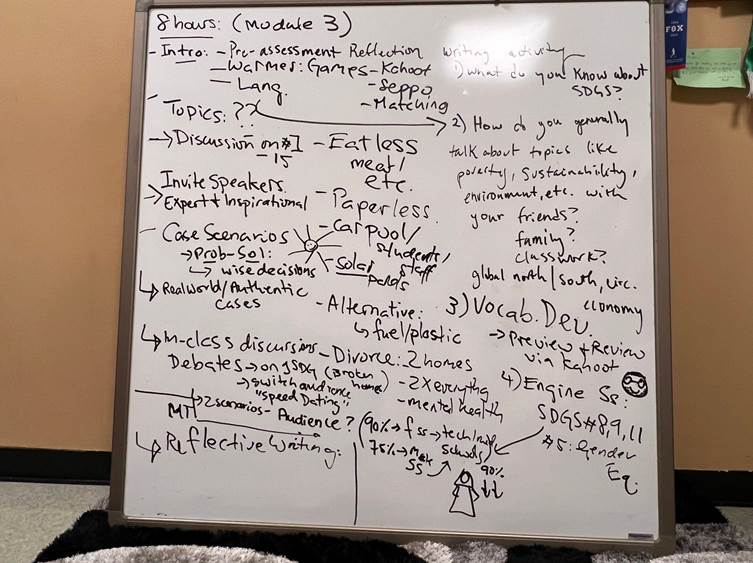 8 hours: (Module 3)
- Intro: - Pre-assessment Reflection
- Warmes: Games - Kahoot
- Lang.
- Seppo
- Matching
- Topics: ??
→ Discussion on #1
- 15
Invite Speakers
→ Expert + Inspirational
- Case Scenarios
→ Prob-Sol:
↳ wise decisions
↳ Real World/Authentic
cases
↳ in-class discursions
Debates → on 1 SDG
→ switch audience
"Speed Dating"
MT → 2 scenarios - Audience?
↳ Reflective Writing:
- Eat less
meat/
etc.
- Paperless
- Car pool/
students/
staff
- Solar
panels
- Alternative:
↳ fuel/plastic
- Divorce: 2 homes
(Broken
homes)
- 2X everythg
- mental health
(90% → f ss → tech/
schools)
75% → Male
SS
90%
writing activity
1) what do you know about
SDGS?
2) How do you generally
talk about topics like
poverty, Sustainability,
environment, etc. with
your friends?
family?
classwork?
global north/south, circ.
economy
3) Vocab. Dev.
→ Preview + Review
via Kahoot
4) Engine Ss:
SDGS #8, 9, 11
#5: Gender
Eq.
FOX